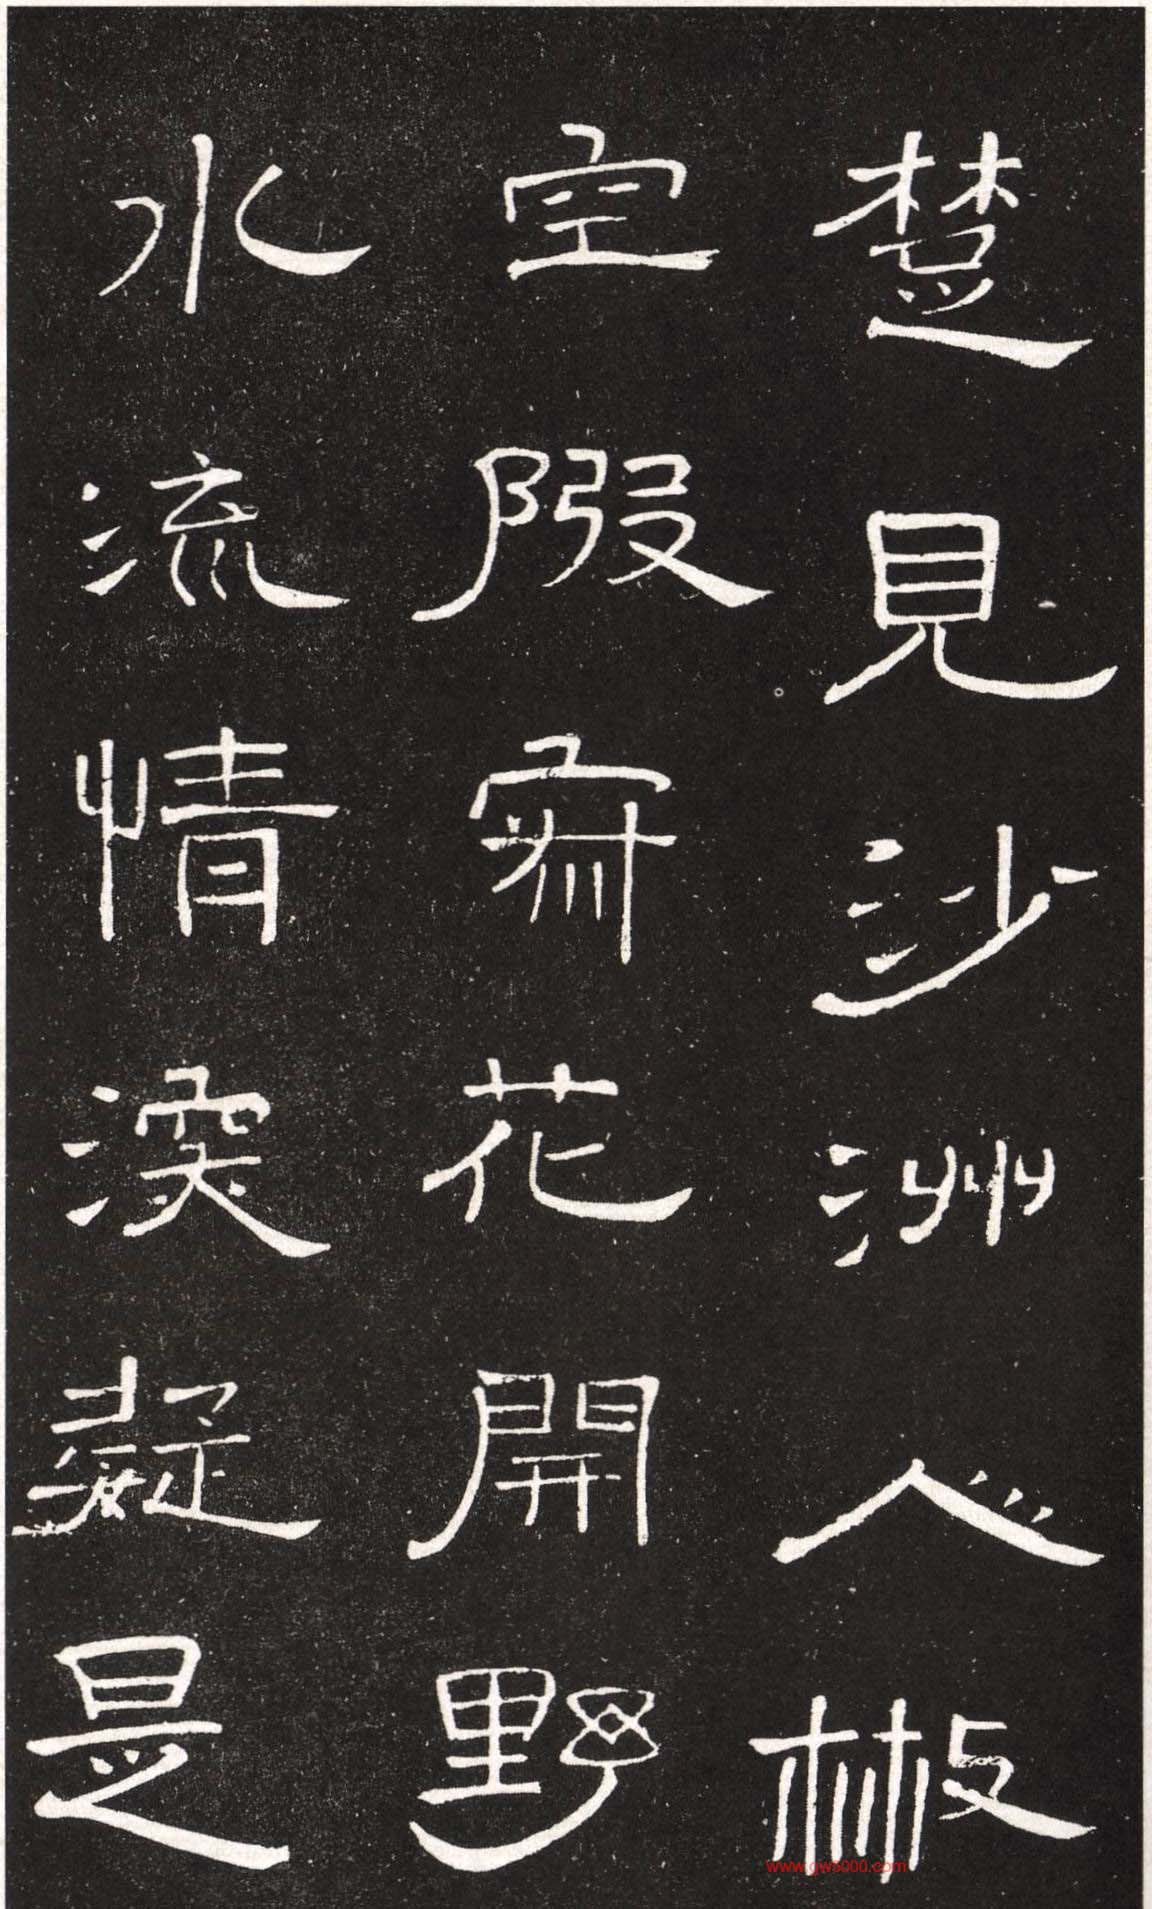 楚見沙洲人散
空寂花開野
水流情深疑是
www.gw8000.com